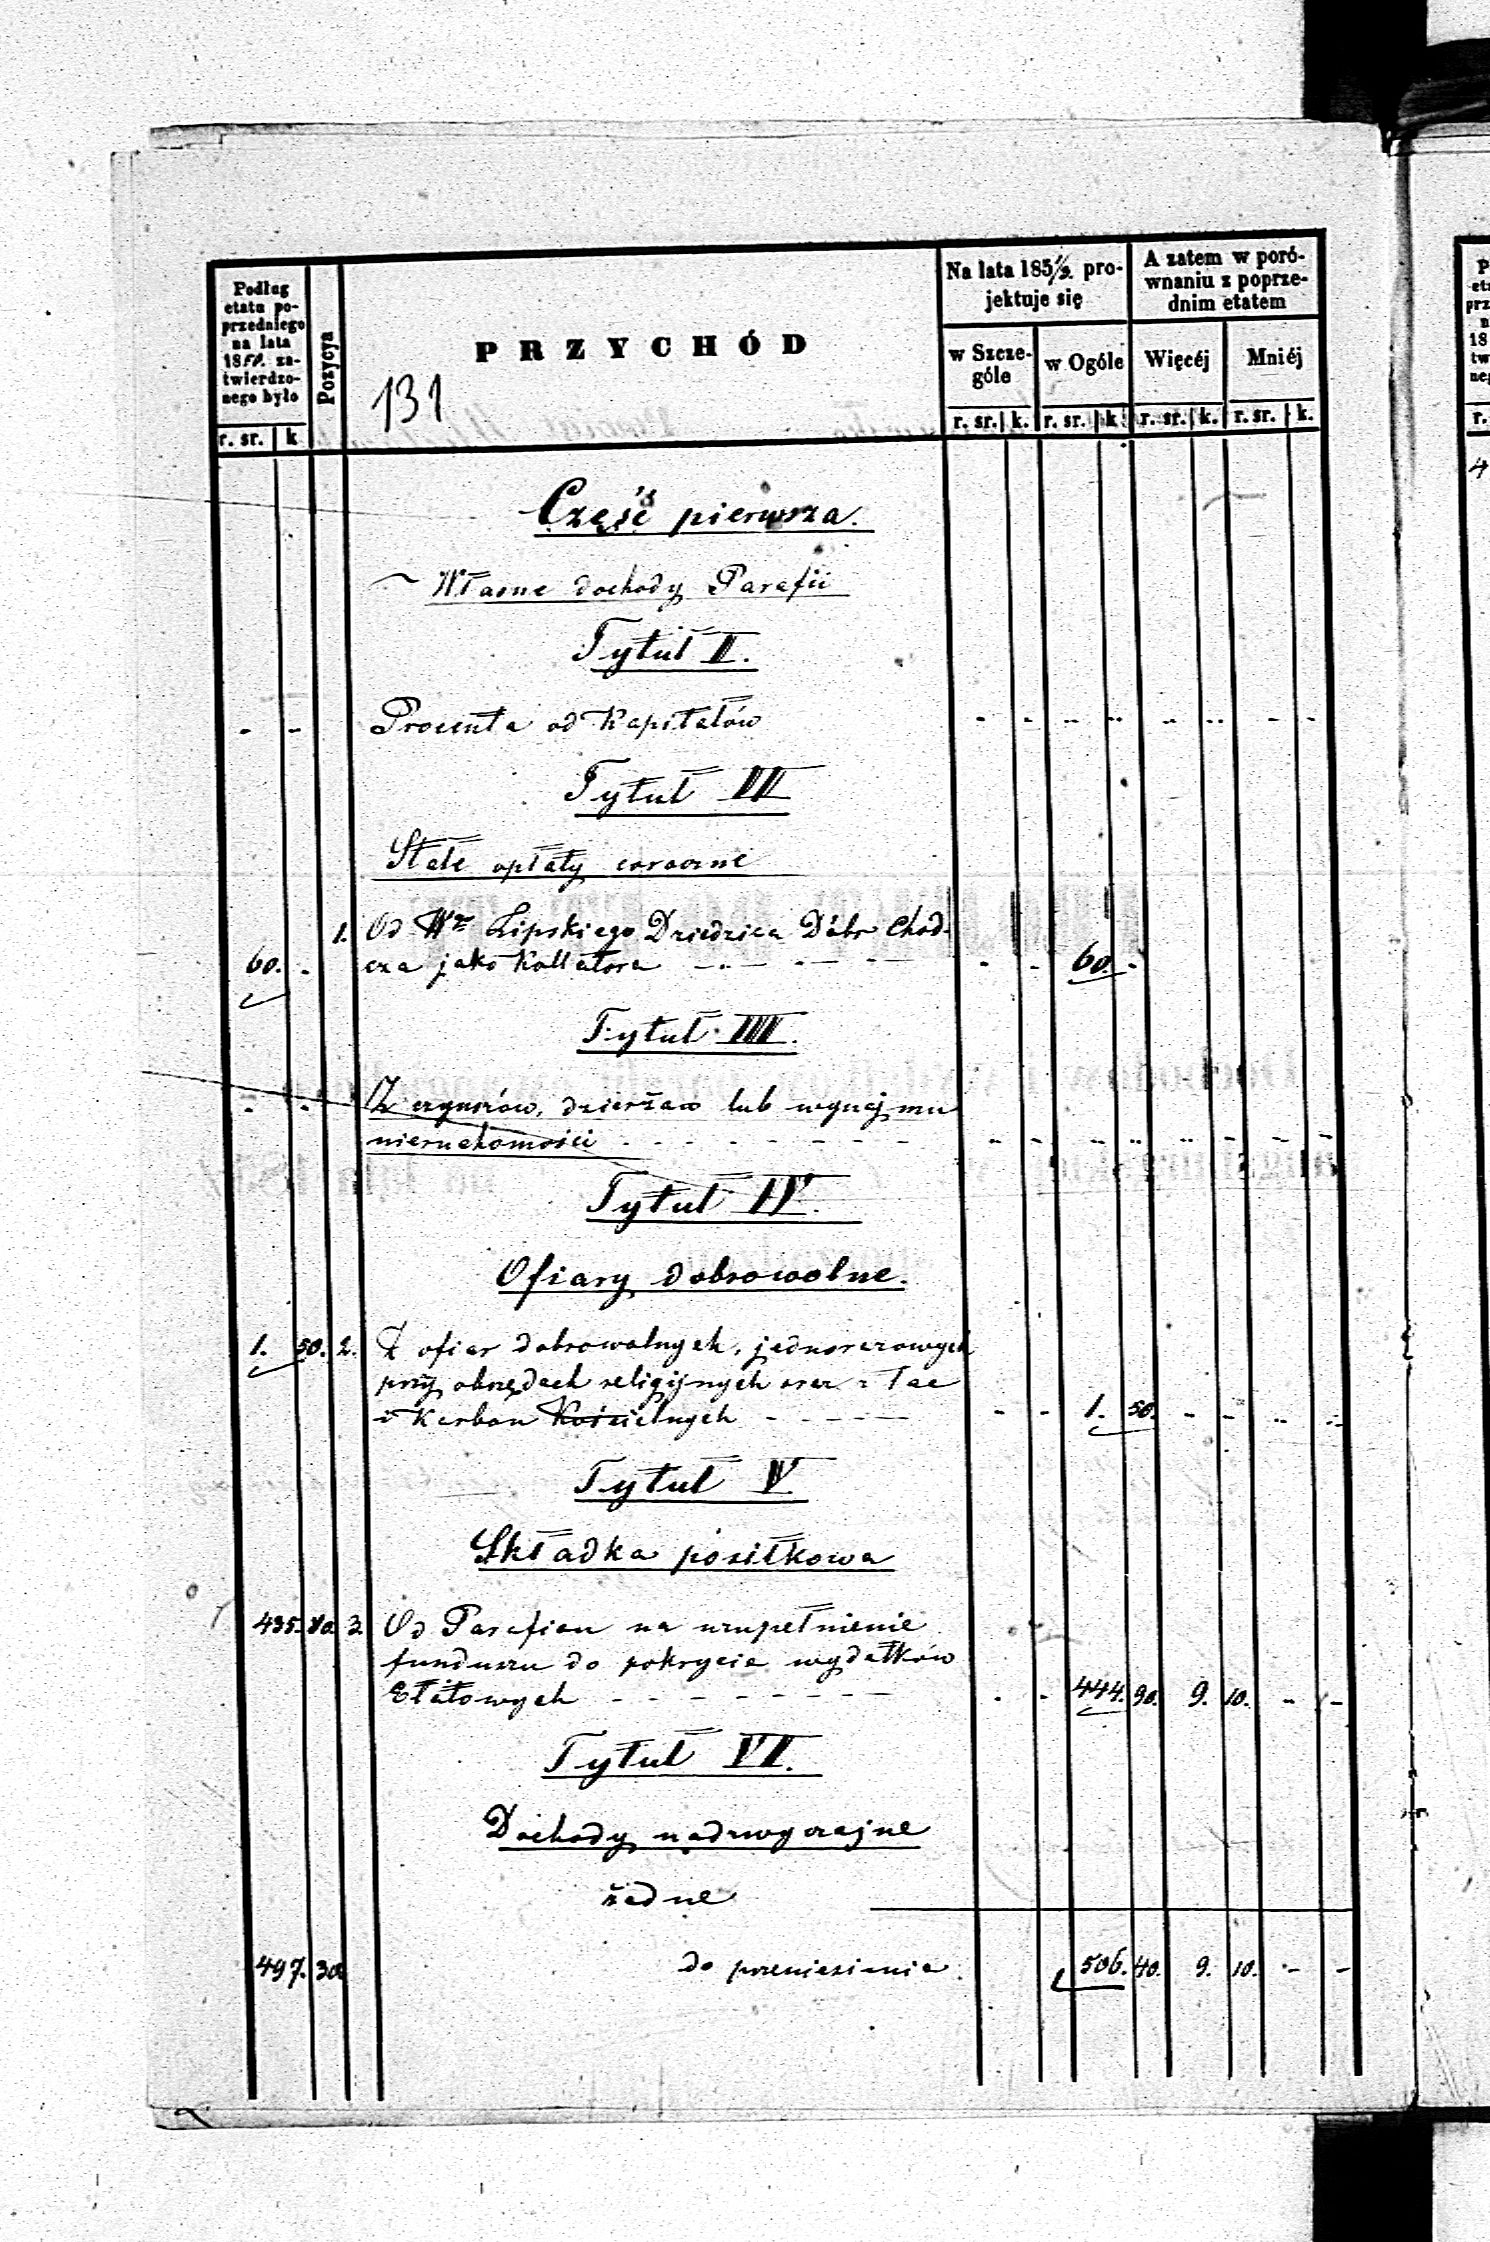 Podług
etatu po-
przedniego
na lata
1850. za-
twierdzo-
nego było
Pozycya
PRZYCHÓD
131
Na lata 185 1/2. pro-
jektuje się
A zatem w poró-
wnaniu z poprze-
dnim etatem
w Szcze-
góle
w Ogóle
Więcéj
Mniéj
r. sr. k
r. sr. k. r. sr. k r. sr. k. r. sr. k.
Część pierwsza.
Własne dochody Parafii
Tytuł I.
- - Procenta od Kapitałów - - - - - - - -
Tytuł II
Stałe opłaty coroczne
1. Od Wo Lipskiego Dziedzica Dóbr Chod-
60. - cza jako Kollatora - - - - - 60. -
Tytuł III.
- - Z czynszów, dzierżaw lub wynajmu
nieruchomości - - - - - - - - - - - - - - - -
Tytuł IV.
Ofiary dobrowolne.
1. 50. 2. Z ofiar dobrowolnych, jednorazowych
przy obrzędach religijnych oraz z Tac
i Karbon Kościelnych - - - - - - 1. 50. - - - -
Tytuł V.
Składka posiłkowa
435. 80. 3. Od Parafian na uzupełnienie
funduszu do pokrycia wydatków
Etatowych - - - - - - - - - - 444. 90. 9. 10. - -
Tytuł VI.
Dochody nadzwyczajne
żadne
497. 30. do przeniesienia. 506. 40. 9. 10. - -